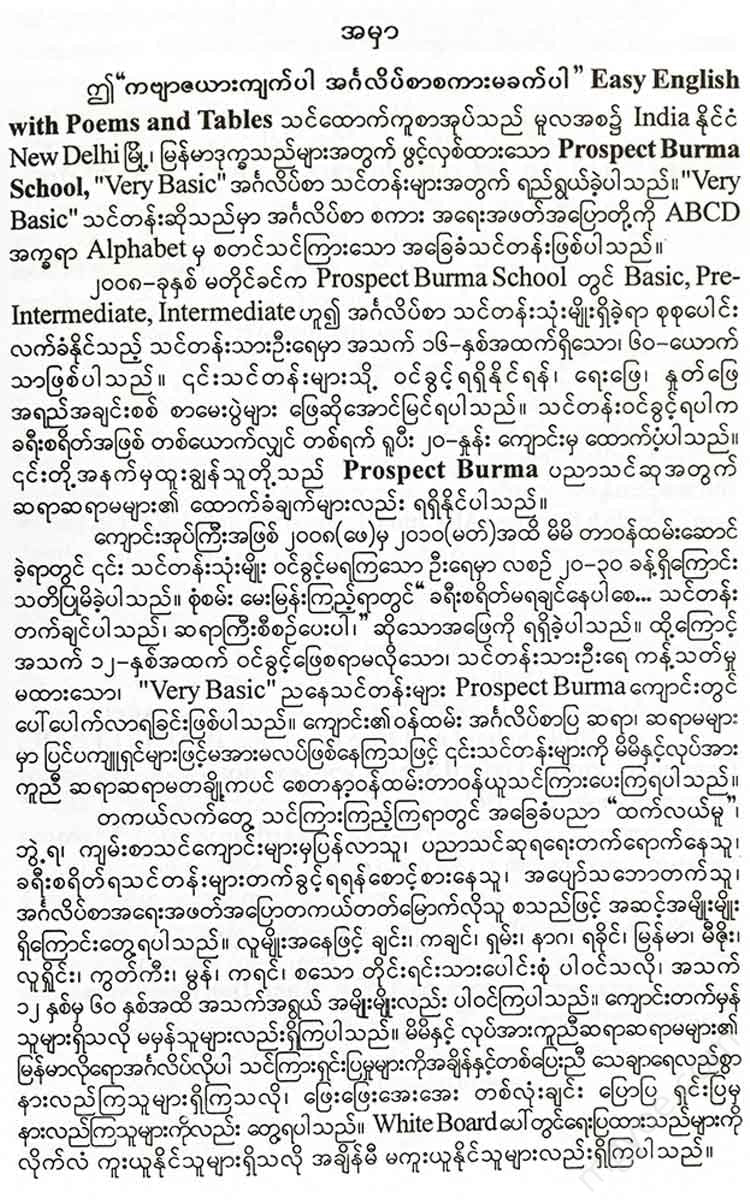 အမှာ
ဤ“ကဗျာဇယားကျက်ပါ အင်္ဂလိပ်စာစကားမခက်ပါ” Easy English
with Poems and Tables သင်ထောက်ကူစာအုပ်သည် မူလအစ၌ India နိုင်ငံ
New Delhi မြို့၊ မြန်မာဒုက္ခသည်များအတွက် ဖွင့်လှစ်ထားသော Prospect Burma
School, "Very Basic" အင်္ဂလိပ်စာ သင်တန်းများအတွက် ရည်ရွယ်ခဲ့ပါသည်။ "Very
Basic" သင်တန်းဆိုသည်မှာ အင်္ဂလိပ်စာ စကား အရေးအဖတ်အပြောတို့ကို ABCD
အက္ခရာ Alphabet မှ စတင်သင်ကြားသော အခြေခံသင်တန်းဖြစ်ပါသည်။
၂၀၀၈-ခုနှစ် မတိုင်ခင်က Prospect Burma School တွင် Basic, Pre-
Intermediate, Intermediate ဟူ၍ အင်္ဂလိပ်စာ သင်တန်းသုံးမျိုးရှိခဲ့ရာ စုစုပေါင်း
လက်ခံနိုင်သည့် သင်တန်းသားဦးရေမှာ အသက် ၁၆-နှစ်အထက်ရှိသော၊ ၆၀-ယောက်
သာဖြစ်ပါသည်။ ၎င်းသင်တန်းများသို့ ဝင်ခွင့်ရရှိနိုင်ရန်၊ ရေးဖြေ၊ နှုတ်ဖြေ
အရည်အချင်းစစ် စာမေးပွဲများ ဖြေဆိုအောင်မြင်ရပါသည်။ သင်တန်းဝင်ခွင့်ရပါက
ခရီးစရိတ်အဖြစ် တစ်ယောက်လျှင် တစ်ရက် ရူပီး ၂၀-နှုန်း ကျောင်းမှ ထောက်ပံ့ပါသည်။
၎င်းတို့အနက်မှထူးချွန်သူတို့သည် Prospect Burma ပညာသင်ဆုအတွက်
ဆရာဆရာမများ၏ ထောက်ခံချက်များလည်း ရရှိနိုင်ပါသည်။
ကျောင်းအုပ်ကြီးအဖြစ် ၂၀၀၈(ဖေ)မှ ၂၀၁၀(မတ်)အထိ မိမိ တာဝန်ထမ်းဆောင်
ခဲ့ရာတွင် ၎င်း သင်တန်းသုံးမျိုး ဝင်ခွင့်မရကြသော ဦးရေမှာ လစဉ် ၂၀-၃၀ ခန့်ရှိကြောင်း
သတိပြုမိခဲ့ပါသည်။ စုံစမ်း မေးမြန်းကြည့်ရာတွင်“ ခရီးစရိတ်မရချင်နေပါစေ... သင်တန်း
တက်ချင်ပါသည်၊ ဆရာကြီးစီစဉ်ပေးပါ၊” ဆိုသောအဖြေကို ရရှိခဲ့ပါသည်။ ထို့ကြောင့်
အသက် ၁၂-နှစ်အထက် ဝင်ခွင့်ဖြေစရာမလိုသော၊ သင်တန်းသားဦးရေ ကန့်သတ်မှု
မထားသော၊ "Very Basic" ညနေသင်တန်းများ Prospect Burma ကျောင်းတွင်
ပေါ်ပေါက်လာရခြင်းဖြစ်ပါသည်။ ကျောင်း၏ဝန်ထမ်း အင်္ဂလိပ်စာပြ ဆရာ၊ ဆရာမများ
မှာ ပြင်ပကျူရှင်များဖြင့်မအားမလပ်ဖြစ်နေကြသဖြင့် ၎င်းသင်တန်းများကို မိမိနှင့်လုပ်အား
ကူညီ ဆရာဆရာမတချို့ကပင် စေတနာ့ဝန်ထမ်းတာဝန်ယူသင်ကြားပေးကြရပါသည်။
တကယ်လက်တွေ့ သင်ကြားကြည့်ကြရာတွင် အခြေခံပညာ “ထက်လယ်မူ”၊
ဘွဲ့ရ၊ ကျမ်းစာသင်ကျောင်းများမှပြန်လာသူ၊ ပညာသင်ဆုရရေးတက်ရောက်နေသူ၊
ခရီးစရိတ်ရသင်တန်းများတက်ခွင့်ရရန်စောင့်စားနေသူ၊ အပျော်သဘောတက်သူ၊
အင်္ဂလိပ်စာအရေးအဖတ်အပြောတကယ်တတ်မြောက်လိုသူ စသည်ဖြင့် အဆင့်အမျိုးမျိုး
ရှိကြောင်းတွေ့ရပါသည်။ လူမျိုးအနေဖြင့် ချင်း၊ ကချင်၊ ရှမ်း၊ နာဂ၊ ရခိုင်၊ မြန်မာ၊ မီဇိုး၊
လူရှိုင်း၊ ကွတ်ကီး၊ မွန်၊ ကရင်၊ စသော တိုင်းရင်းသားပေါင်းစုံ ပါဝင်သလို၊ အသက်
၁၂ နှစ်မှ ၆၀ နှစ်အထိ အသက်အရွယ် အမျိုးမျိုးလည်း ပါဝင်ကြပါသည်။ ကျောင်းတက်မှန်
သူများရှိသလို မမှန်သူများလည်းရှိကြပါသည်။ မိမိနှင့် လုပ်အားကူညီဆရာဆရာမများ၏
မြန်မာလိုရောအင်္ဂလိပ်လိုပါ သင်ကြားရှင်းပြမှုများကိုအချိန်နှင့်တစ်ပြေးညီ သေချာရေလည်စွာ
နားလည်ကြသူများရှိကြသလို၊ ဖြေးဖြေးအေးအေး တစ်လုံးချင်း ပြောပြ ရှင်းပြမှ
နားလည်ကြသူများကိုလည်း တွေ့ရပါသည်။ White Board ပေါ်တွင်ရေးပြထားသည်များကို
လိုက်လံ ကူးယူနိုင်သူများရှိသလို အချိန်မီ မကူးယူနိုင်သူများလည်းရှိကြပါသည်။